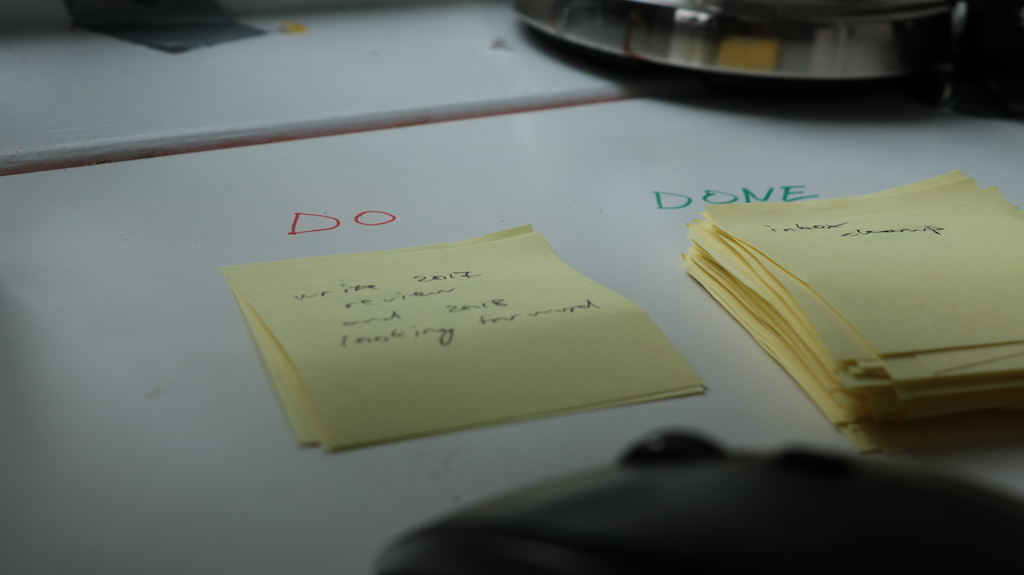 DO
DONE
write 2017
review
and 2018
looking forward
inbox
cleanup